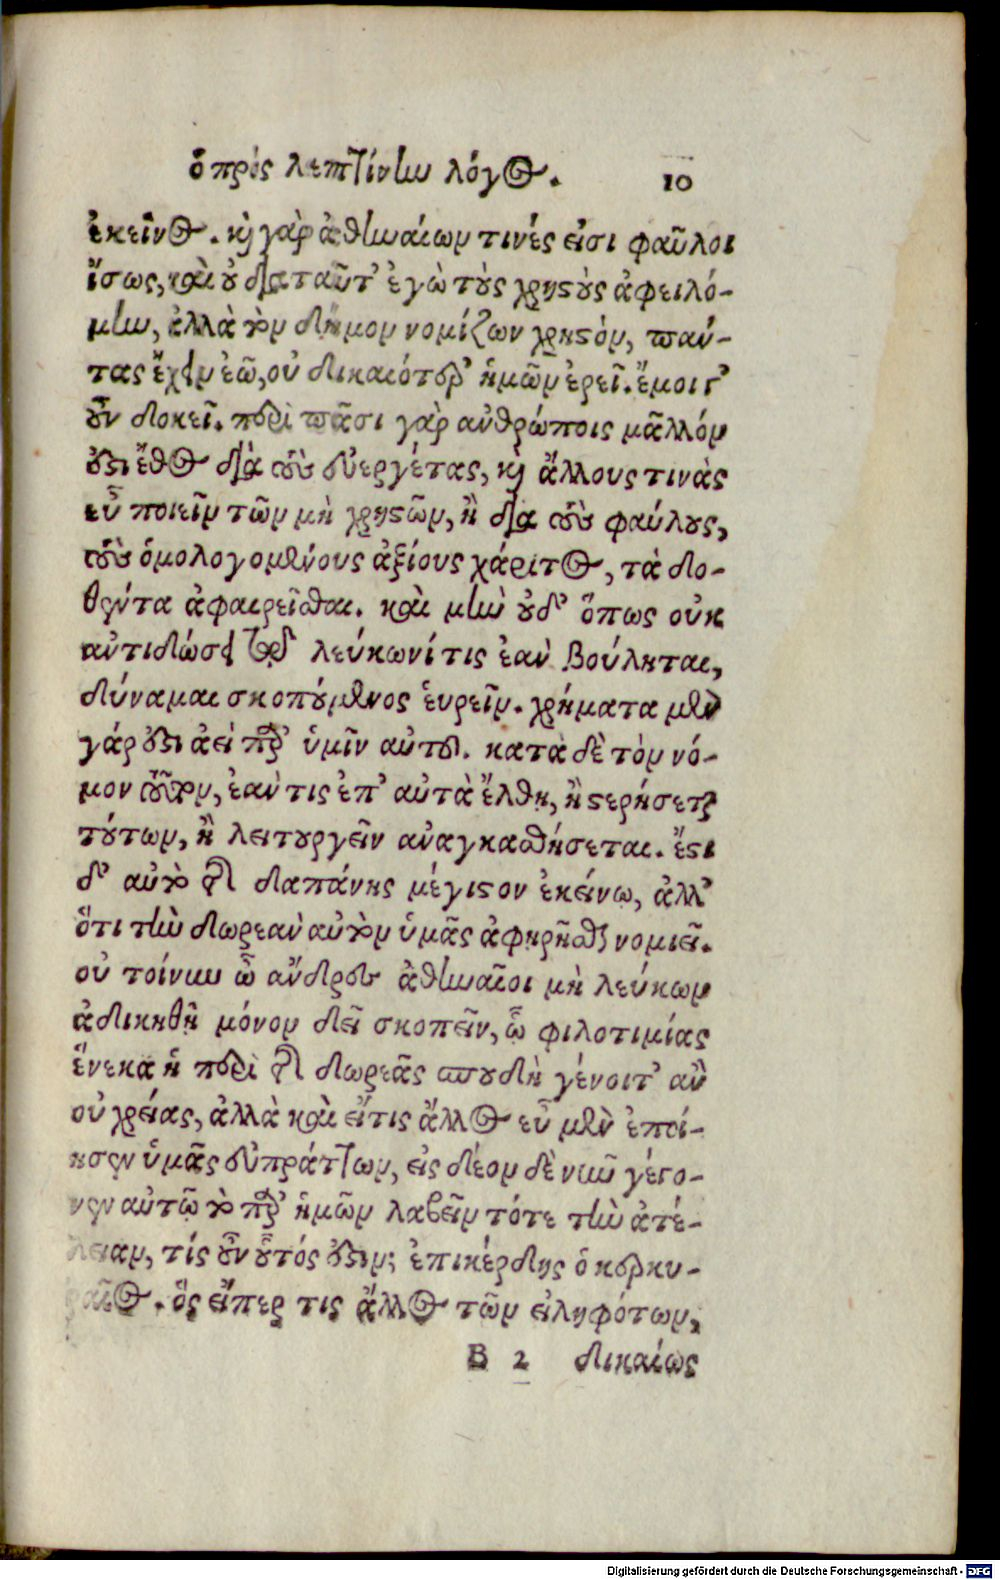 ὁ πρὸς λεπτίνην λόγος. 10
ἐκεῖνος. καὶ γὰρ ἀθηναίων τινές εἰσι φαῦλοι
ἴσως, καὶ οὐ διὰ ταῦτ' ἐγὼ τοὺς χρηστοὺς ἀφειλό-
μην, ἀλλὰ τὸν δῆμον νομίζων χρηστὸν, παν-
τας ἔχειν ἐῶ, οὐ δικαιότερ' ἡμῶν ἐρεῖ. ἔμοιγ'
οὖν δοκεῖ. παρὰ πᾶσι γὰρ ἀνθρώποις μᾶλλόν
ἐστι ἔθος διὰ τοὺς εὐεργέτας, καὶ ἄλλους τινὰς
εὖ ποιεῖν τῶν μὴ χρηστῶν, ἢ διὰ τοὺς φαύλους,
τοὺς ὁμολογουμένους ἀξίους χάριτος, τὰ δο-
θέντα ἀφαιρεῖσθαι. καὶ μὴν οὐδ' ὅπως οὐκ
ἀντιδώσει τῷ λεύκωνί τις ἐὰν βούληται,
δύναμαι σκοπούμενος εὑρεῖν. χρήματα μὲν
γάρ ἐστι ἀεὶ παρ' ὑμῖν αὐτοῦ. κατὰ δὲ τὸν νό-
μον τοῦτον, ἐάν τις ἐπ' αὐτὰ ἔλθη, ἢ στερήσεται
τούτων, ἢ λειτουργεῖν ἀναγκασθήσεται. ἔστι
δ' οὐ τὸ τῆς δαπάνης μέγιστον ἐκείνω, ἀλλ'
ὅτι τὴν δωρεὰν αὐτὸν ὑμᾶς ἀφῃρῆσθαι νομιεῖ.
οὐ τοίνυν ὦ ἄνδρες ἀθηναῖοι μὴ λεύκων
ἀδικηθῆ μόνον δεῖ σκοπεῖν, ᾧ φιλοτιμίας
ἕνεκα ἡ περὶ τῆς δωρεᾶς σπουδὴ γένοιτ' ἂν
οὐ χρείας, ἀλλὰ καὶ εἴτις ἄλλος εὖ μὲν ἐποί-
ησεν ὑμᾶς εὐπράττων, εἰς δέον δὲ νῦν γέγο-
νεν αὐτῶ τὸ παρ' ἡμῶν λαβεῖν τότε τὴν ἀτέ-
λειαν, τίς οὖν οὗτός ἐστιν; ἐπικέρδης ὁ κερκυ-
ραῖος. ὃς εἴπερ τις ἄλλος τῶν εἰληφότων,
B 2 δικαίως
Digitalisierung gefördert durch die Deutsche Forschungsgemeinschaft - DFG